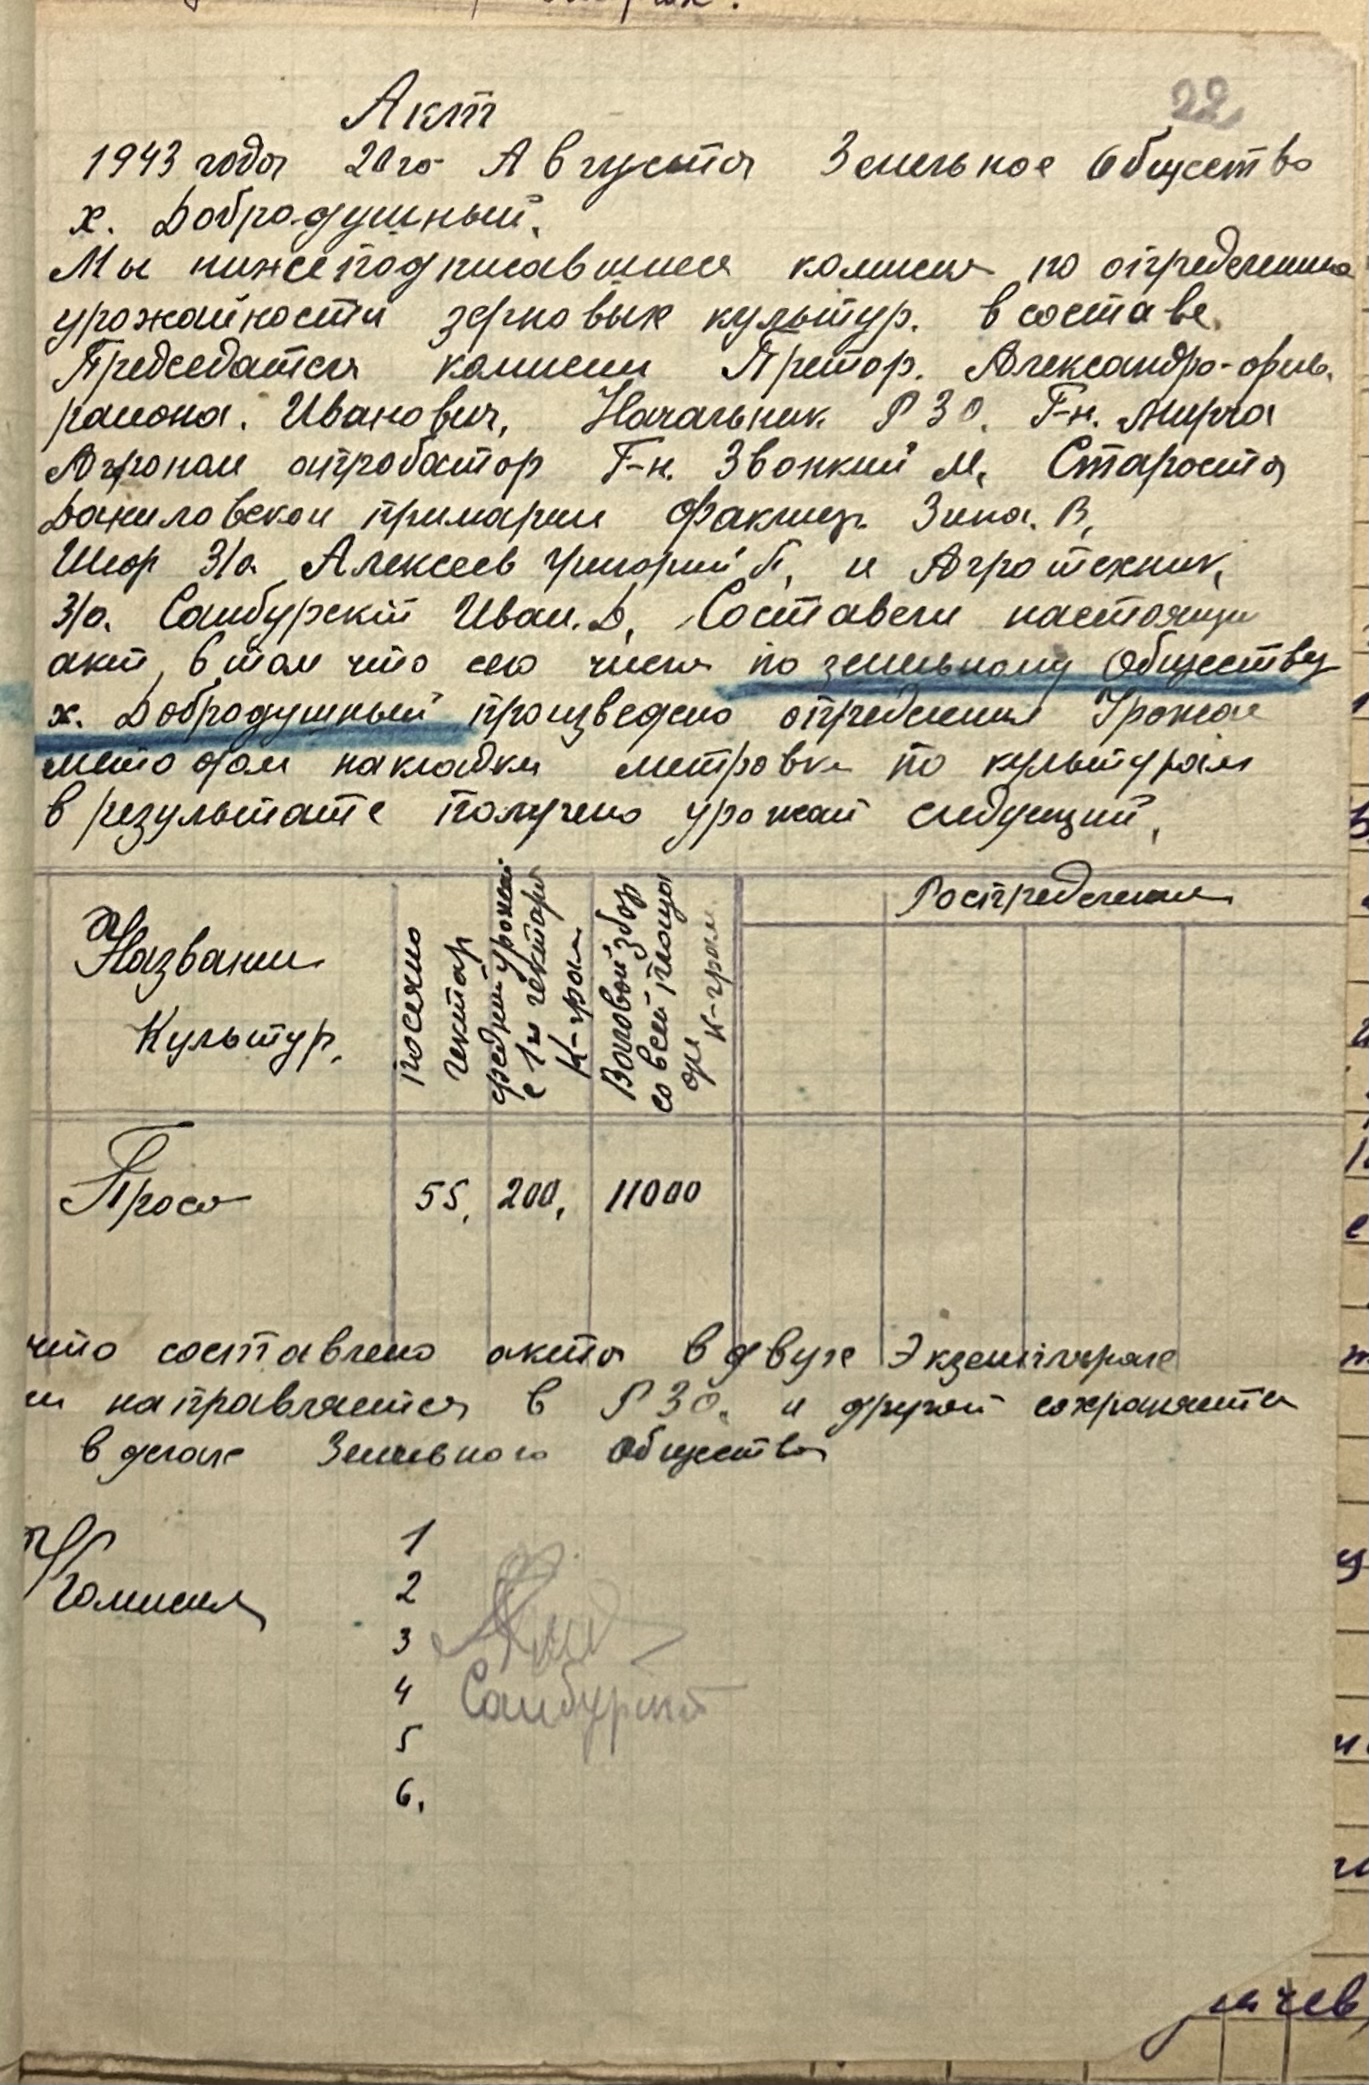 22
Акт
1943 года 20го Августа Земельное Общество
х. Добродушный.
Мы нижеподписавшиеся комисия по определению
урожайности зерновых культур. в составе.
Председателя комисии Претор. Александро-
района. Иванович, Начальник РЗО. Г-н. Мирча
Агроном апробатор Г-н. Звонкий М, Староста
Даниловской примарии Зина. В,
З/о Алексеев Григорий П, и Агротехник,
З/о. Самбурскій Иван. Д, Составели настоящи
акт, в том что сего числа по земельному Обществу
х. Добродушный произведено определения Урожая
методом накладки метровки по культурам
в результате получено урожай следующий,
Названия Культур,
посеяно гектар
средний урожай с 1 га гектара К-грам
Волговой збор со всей площади К-грам
Роспределения
Просо 55, 200, 11000
что составлено акта в двух Экземплярах
направляется в РЗО. и другой сохраняется
в делах Земельного Общества
Комисия
1
2
3
4 Самбурскій
5
6.
ичев,